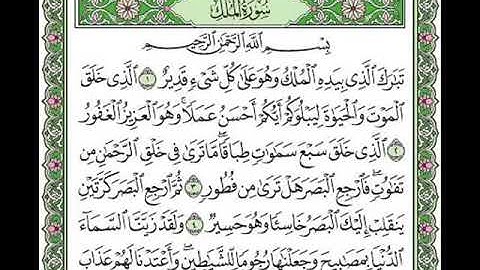 سُورَةُ المُلْكِ
بِسْمِ ٱللَّهِ ٱلرَّحْمَٰنِ ٱلرَّحِيمِ
تَبَٰرَكَ ٱلَّذِي بِيَدِهِ ٱلْمُلْكُ وَهُوَ عَلَىٰ كُلِّ شَيْءٍ قَدِيرٌ ١ ٱلَّذِي خَلَقَ
ٱلْمَوْتَ وَٱلْحَيَوٰةَ لِيَبْلُوَكُمْ أَيُّكُمْ أَحْسَنُ عَمَلًا ۚ وَهُوَ ٱلْعَزِيزُ ٱلْغَفُورُ
٢ ٱلَّذِي خَلَقَ سَبْعَ سَمَٰوَٰتٍ طِبَاقًا ۖ مَّا تَرَىٰ فِي خَلْقِ ٱلرَّحْمَٰنِ مِن
تَفَٰوُتٍ ۖ فَٱرْجِعِ ٱلْبَصَرَ هَلْ تَرَىٰ مِن فُطُورٍ ٣ ثُمَّ ٱرْجِعِ ٱلْبَصَرَ كَرَّتَيْنِ
يَنقَلِبْ إِلَيْكَ ٱلْبَصَرُ خَاسِئًا وَهُوَ حَسِيرٌ ٤ وَلَقَدْ زَيَّنَّا ٱلسَّمَآءَ
ٱلدُّنْيَا بِمَصَٰبِيحَ وَجَعَلْنَٰهَا رُجُومًا لِّلشَّيَٰطِينِ ۖ وَأَعْتَدْنَا لَهُمْ عَذَابَ